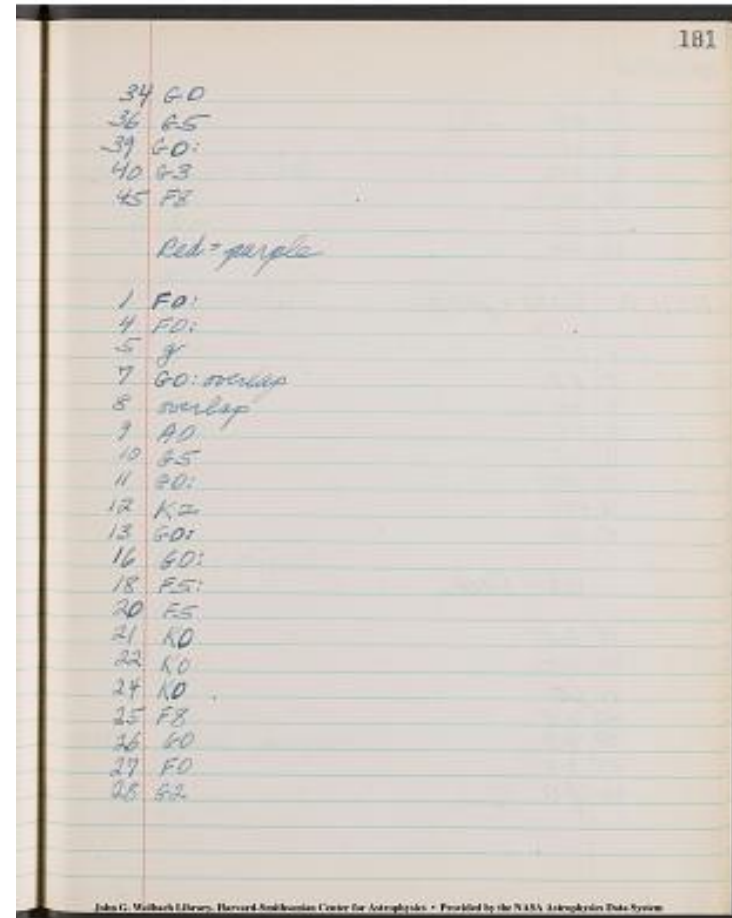 181
34 G0
36 G5
39 G0:
40 G3
45 F8
Red = purple
1 F0:
4 F0:
5 g
7 G0: overlap
8 overlap
9 A0
10 G5
11 G0:
12 K2
13 G0:
16 G0:
18 F5:
20 F5
21 K0
22 K0
24 K0
25 F8
26 G0
27 F0
28 G2
John G. Wolbach Library, Harvard-Smithsonian Center for Astrophysics • Provided by the NASA Astrophysics Data System